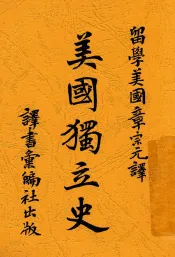 留學美國章宗元譯
美國獨立史
譯書彙編社出版